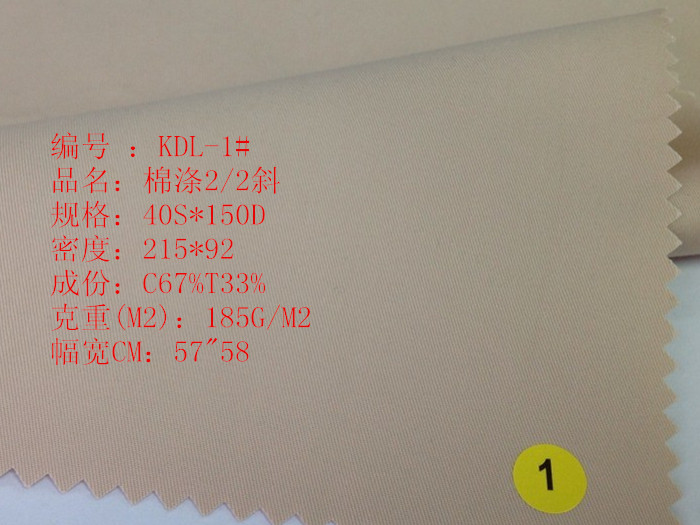 编号 ：KDL-1#
品名：棉涤2/2斜
规格：40S*150D
密度：215*92
成份：C67%T33%
克重(M2)：185G/M2
幅宽CM：57"58
1